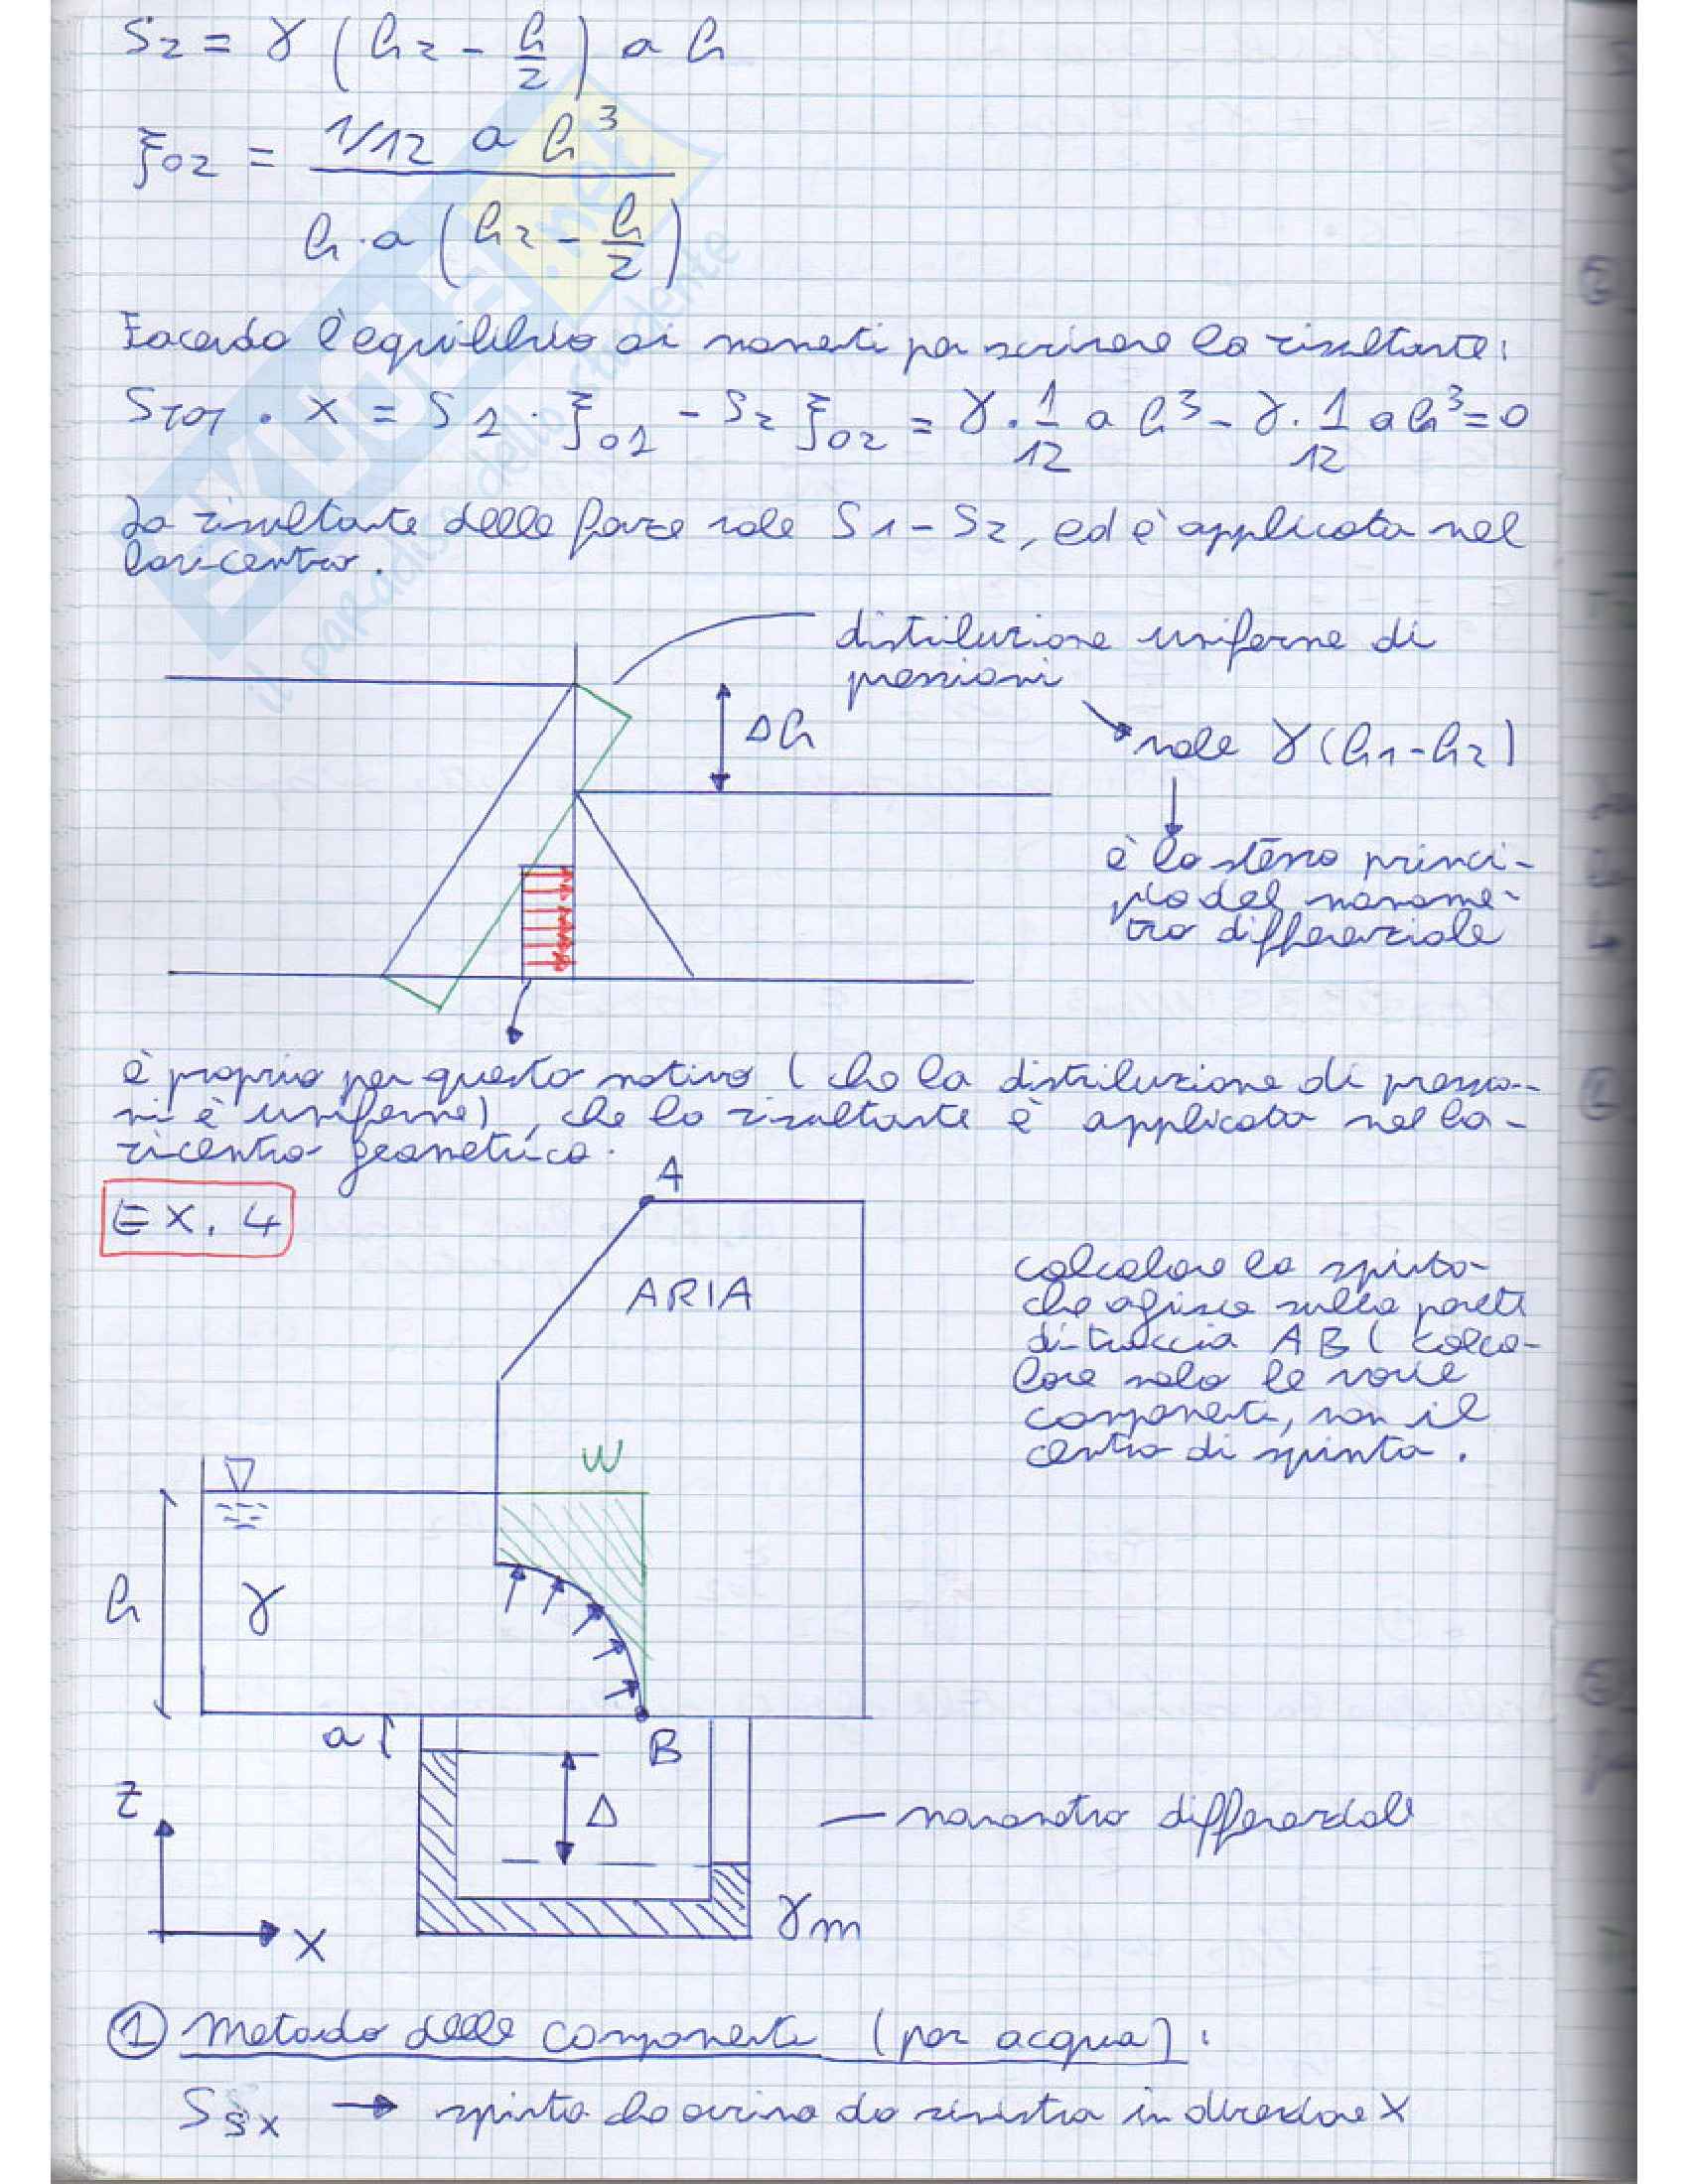 S2 = γ (h2 - h/2) a h
ξ02 = 1/12 a h³ / h·a (h2 - h/2)
Facendo l'equilibrio ai momenti per scrivere la risultante:
STOT · x = S1 · ξ01 - S2 ξ02 = γ · 1/12 a h³ - γ · 1/12 a h³ = 0
La risultante delle forze vale S1 - S2, ed è applicata nel
baricentro.
distribuzione uniforme di
pressioni
Δh
vale γ (h1 - h2)
è lo stesso princi-
pio del manome-
tro differenziale
è proprio per questo motivo (che la distribuzione di pressio-
ni è uniforme), che la risultante è applicata nel ba-
ricentro geometrico.
EX. 4
A
ARIA
calcolare la spinta
che agisce sulla parete
di traccia AB (calco-
lare solo le varie
componenti, non il
centro di spinta.
W
h
γ
a
B
Δ
z
x
manometro differenziale
γm
① Metodo delle componenti (per acqua):
SSX → spinta che arriva da sinistra in direzione x
SKUOLA.net
il paradiso dello studente